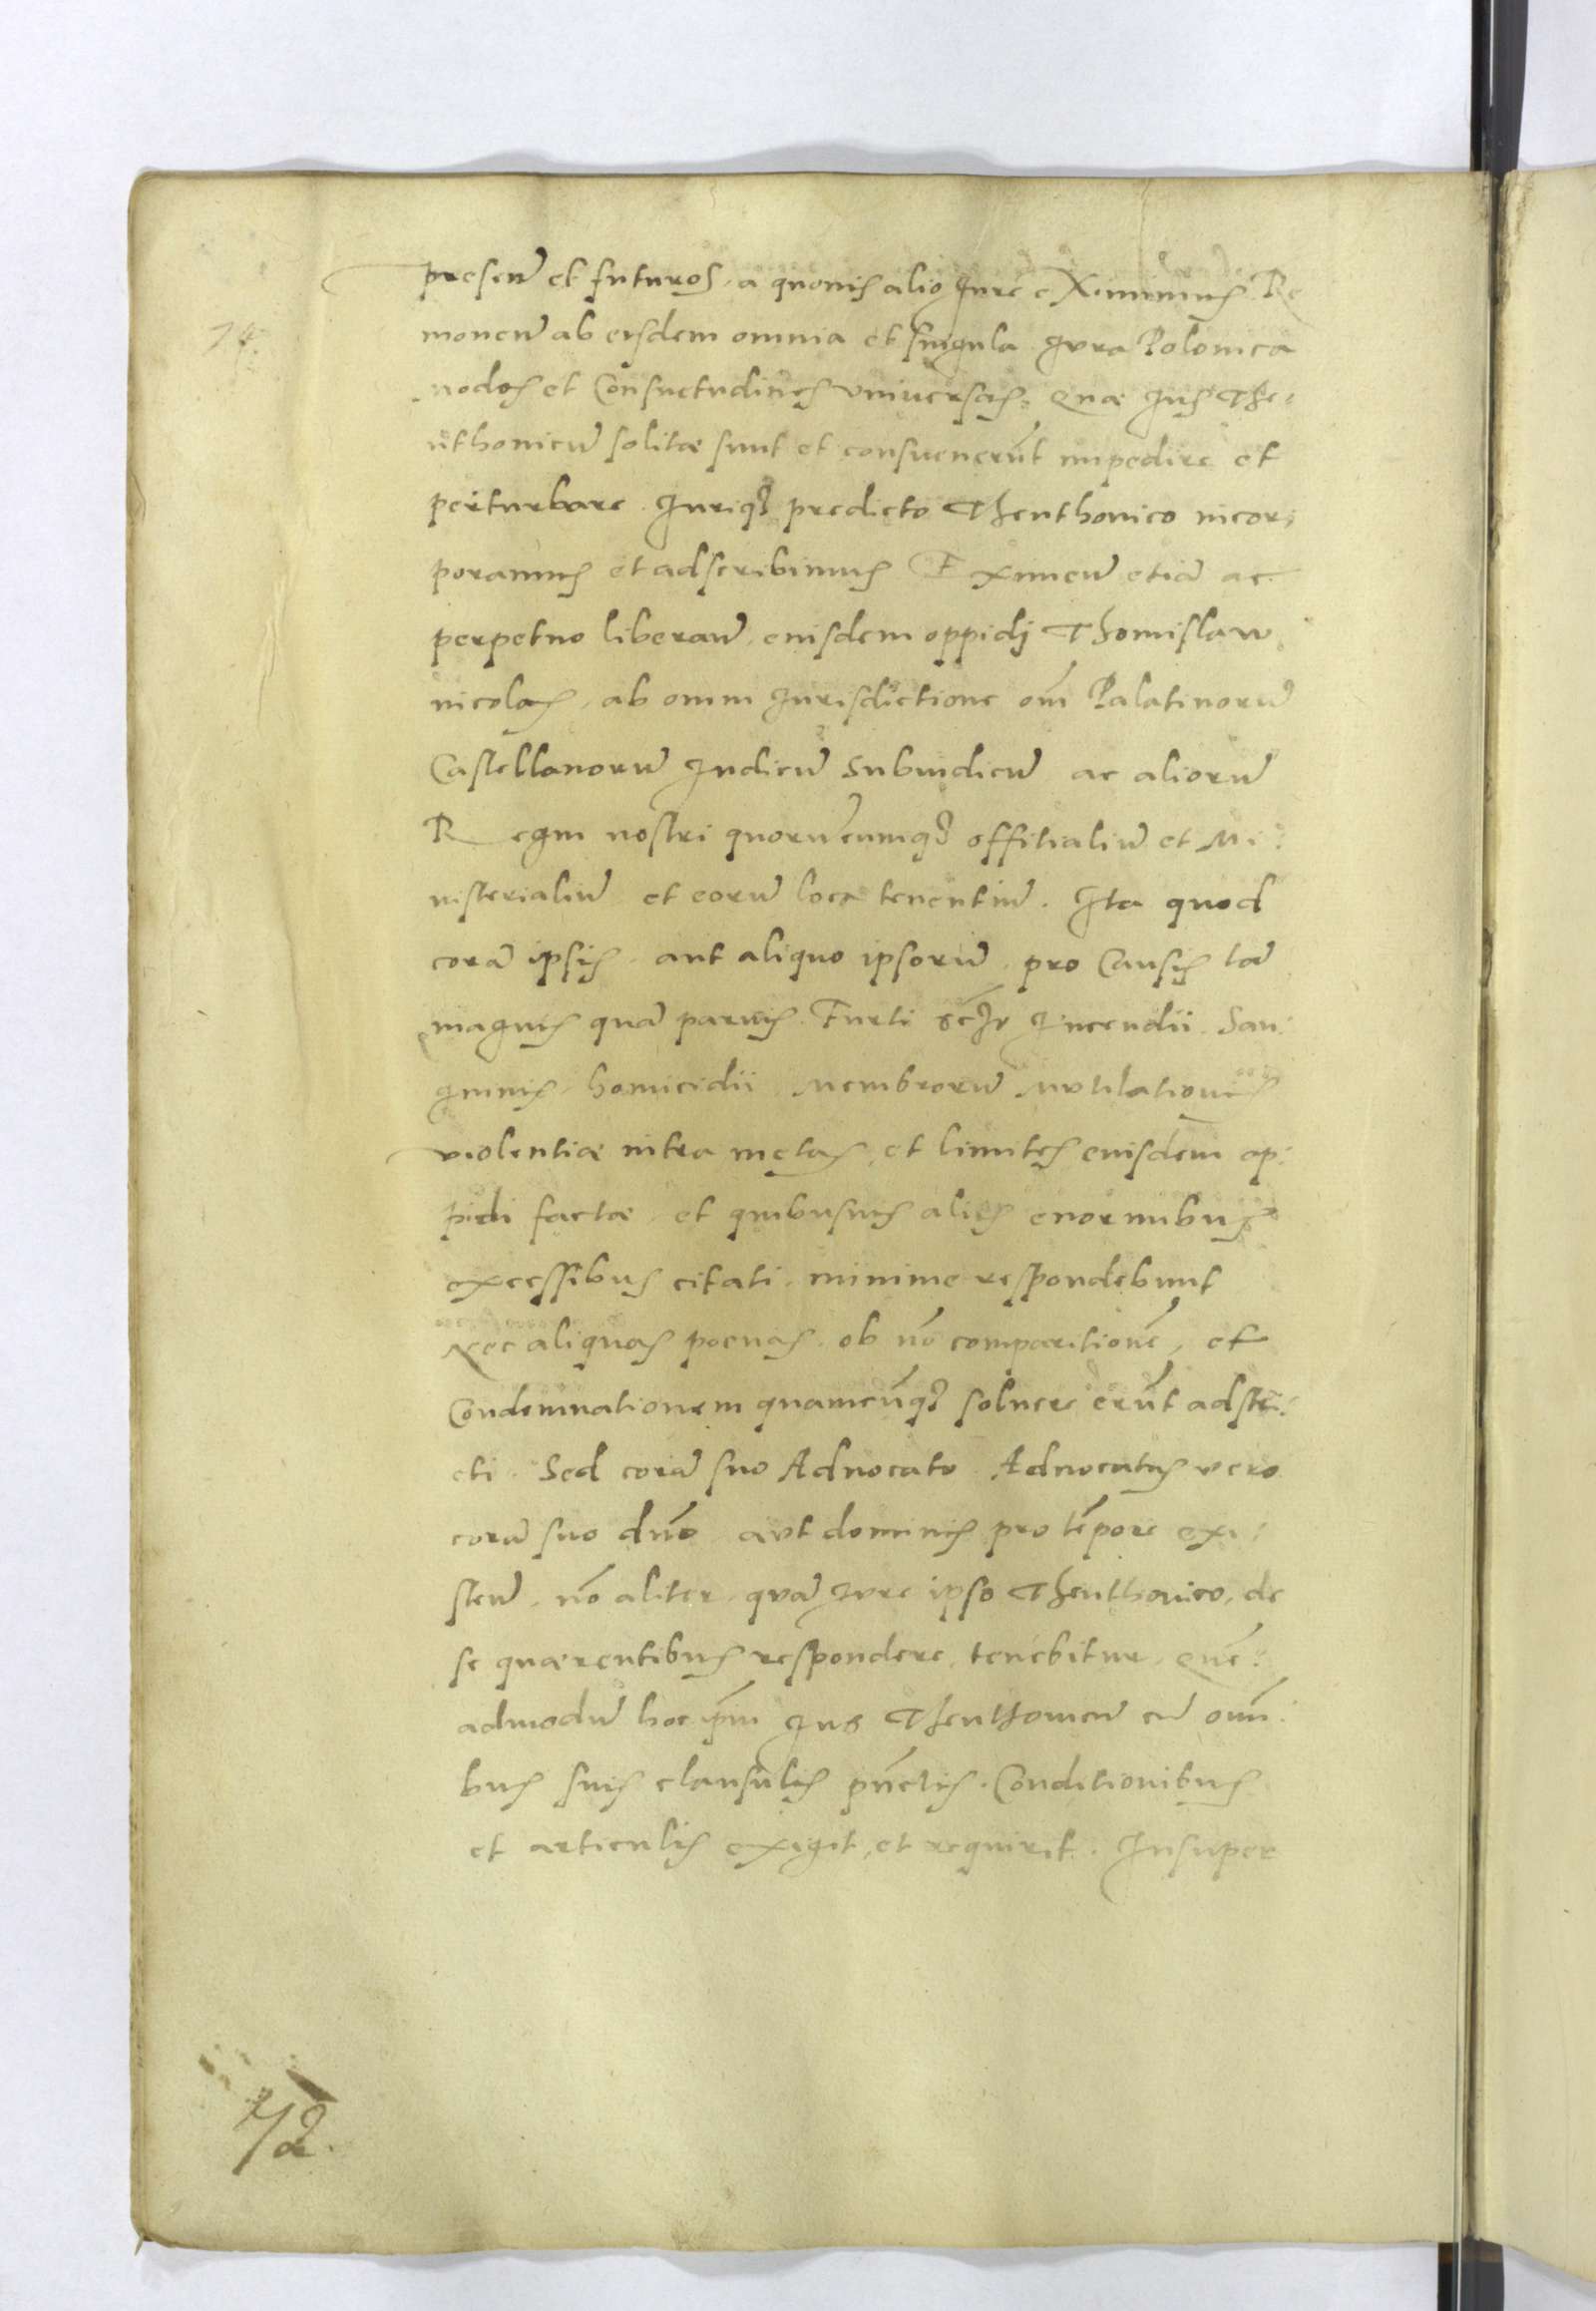 presen̄ et futuros a quovis alio Jure eXimimus. Re
moven̄ ab eisdem omnia et singula Jura Polonica
modos et Consuetudines universas. Quæ Jus The-
uthonicū solitæ sunt et consuenerūt impedire et
perturbare. Juriq3 predicto Theuthonico incor-
poramus et adscribimus Eximen̄ etiā ac
perpetuo liberan̄ euisdem oppidj Thomislaw
incolas, ab omni Jurisdictione om̄ Palatinorū
Castellanorū Judicū Subiudicū ac aliorū
Regni nostri quorūcumq3 offitialiū et Mi-
nisterialiū et eorū loca tenentiū. Ita quod
corā ipsis aut aliquo ipsorū pro Causis tā
magnis quā parvis. Furti Incendii San-
guinis homicidii Membrorū Mutilationis
violentiæ intra metas et limites euisdem op-
pidi factæ et quibusvis aliis enormibus
excessibus citati minime respondebunt
Nec aliquas poenas ob nō comparitionē, et
Condemnationem quamcūq3 solvere erūt adstri-
cti. Sed corā suo Advocato Advocatus vero
corā suo dn̄o aut dominis pro tēpore exi-
sten̄ nō aliter quā Jure ipso Theuthonico, de
se quærentibus respondere tenebitur Quē-
admodū hoc ip̄m Jus Theuthonicū cū omni-
bus suis clausulis pūctis Conditionibus
et articulis exigit, et requirit. Insuper
72.